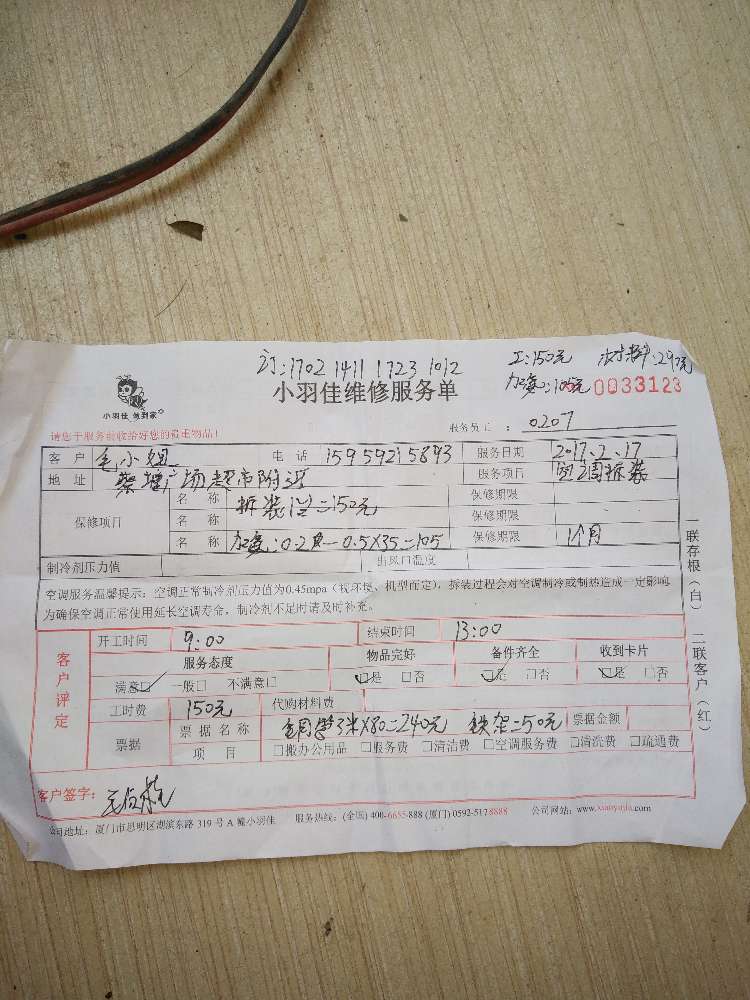 订:1702 1411 1723 1012 工:150元 材料:290元
小羽佳维修服务单 加氟:105元 0033123
小羽佳 做到家
请您于服务前收拾好您的贵重物品! 服务员工 : 0207
客 户 毛小姐 电 话 15959215893 服务日期 2017.2.17
地 址 蔡塘广场超市附近 服务项目 空调拆装
保修项目 名 称 拆装1台=150元 保修期限
名 称 保修期限
名 称 加氟:0.2 0.5X35=105 保修期限 1个月
制冷剂压力值 出风口温度
空调服务温馨提示:空调正常制冷剂压力值为0.45mpa(视环境、机型而定),拆装过程会对空调制冷或制热造成一定影响
为确保空调正常使用延长空调寿命,制冷剂不足时请及时补充。
客户评定
开工时间 9:00 结束时间 13:00
服务态度 物品完好 备件齐全 收到卡片
满意□ 一般□ 不满意□ □是 □否 □是 □否 □是 □否
工时费 150元 代购材料费
票据 票据名称 铜管3米X80=240元 铁架=50元 票据金额
项 目 □搬办公用品 □服务费 □清洁费 □空调服务费 □清洗费 □疏通费
客户签字:
公司地址:厦门市思明区湖滨东路 319 号 A 幢小羽佳 服务热线:(全国) 400-6655-888 (厦门) 0592-5178888 公司网站:www.xiaoyujia.com
一联存根(白) 二联客户(红)